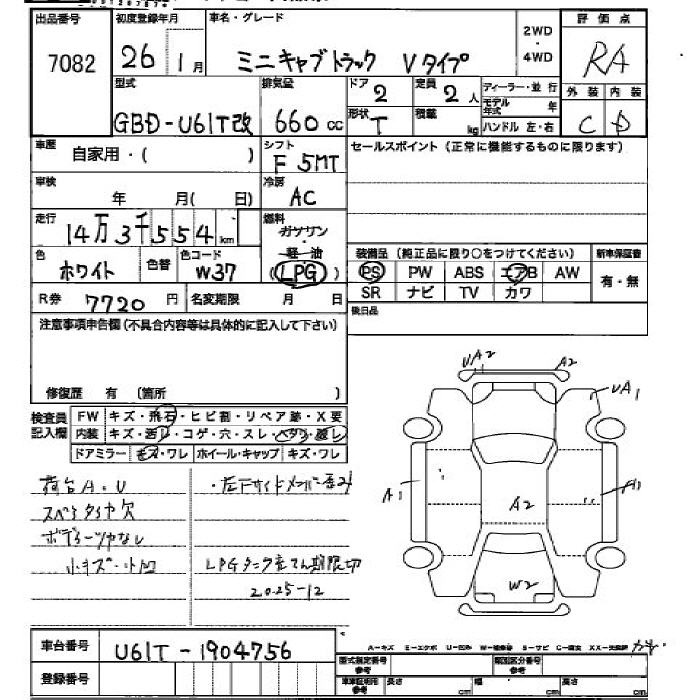 出品番号 初度登録年月 車名・グレード 評価点
7082 26 1月 ミニキャブトラック Vタイプ 2WD・4WD RA
型式 排気量 ドア 定員 ディーラー・並行 外装 内装
GBD-U61T改 660cc 2 2人 モデル年式 年 C D
形状 T 積載 kg ハンドル 左・右
車歴 自家用・( ) シフト F 5MT セールスポイント(正常に機能するものに限ります)
車検 年 月( 日) 冷房 AC
走行 14万3千554km 燃料 ガソリン・軽油 (LPG)
色 ホワイト 色替 色コード W37
装備品(純正品に限り○をつけてください) 新車保証書
PS PW ABS エアB AW 有・無
SR ナビ TV カワ
R券 7720円 名変期限 月 日 後日品
注意事項申告欄(不具合内容等は具体的に記入して下さい)
修復歴 有 〔箇所 〕
検査員記入欄 FW キズ・飛石・ヒビ割・リペア跡・X要
内装 キズ・汚レ・コゲ・穴・スレ・ヘタリ・破レ
ドアミラー キズ・ワレ ホイール・キャップ キズ・ワレ
荷台A・U ・左下サイドメンバー歪み
スペアタイヤ欠
ボデーツヤなし
小キズ・小凹 LPGタンク 期限切
2025-12
UA2 A2
UA1
A1 A2 A1
W2
車台番号 U61T-1904756
A-キズ E-エクボ U-凹み W-補修跡 S-サビ C-腐食 XX-交換済
登録番号 型式指定番号 参考 類別区分番号 参考
車庫証明用 参考 長さ cm 幅 cm 高さ cm